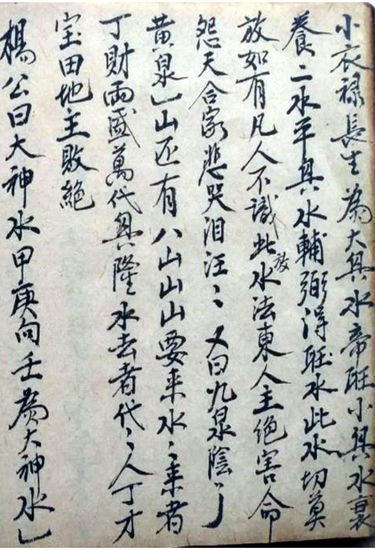 小衣禄長生為大興水帝旺小興水衰
養二水平興水輔弼浔旺水此水切莫
放如有凡人不識此放水法東人主絶害命
怨天合家悲哭泪汪〻又曰九泉陰了
黄泉乚山还有八山山山要来水〻来者
丁財両盛萬代興隆水去者代〻人丁才
宝田地主敗絶
楊公曰大神水甲庚向壬為大神水乚